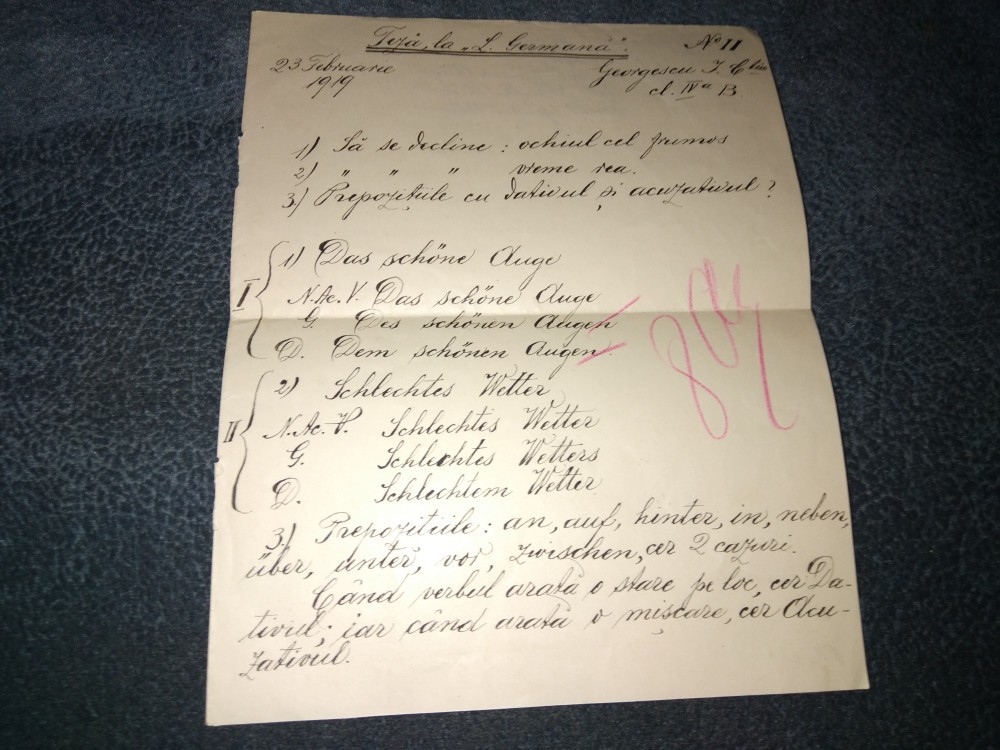 Teză, la „L. Germană".
No 11
23 Februarie
1919
Georgescu I. C-tin
cl. IVa B
1) Să se decline : ochiul cel frumos
2) " " " vreme rea.
3.) Prepozițiile cu dativul și acuzativul ?
I
1) Das schöne Auge
N. Ac. V. Das schöne Auge
G. Des schönen Augen
D. Dem schönen Augen.
II
2) Schlechtes Wetter
N. Ac. V. Schlechtes Wetter
G. Schlechtes Wetters
D. Schlechtem Wetter
3.) Prepozitiile : an, auf, hinter, in, neben,
über, unter, vor, zwischen, cer 2 cazuri.
Când verbul arată o stare pe loc, cer Da-
tivul; iar când arată o mișcare, cer Acu-
zativul.